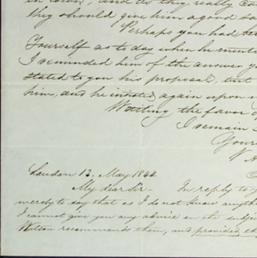 they should give him a good
Perhaps you had
Yourself as to day when he
I reminded him of the answer
stated to you his proposal, that
him, and he insisted again upon
Waiting the favor of
I remain
Your
London 13. May 18
My dear Sir. In reply to
merely to say that as I do not know anything
I cannot give you any advice on the subject
recommends them, and provided